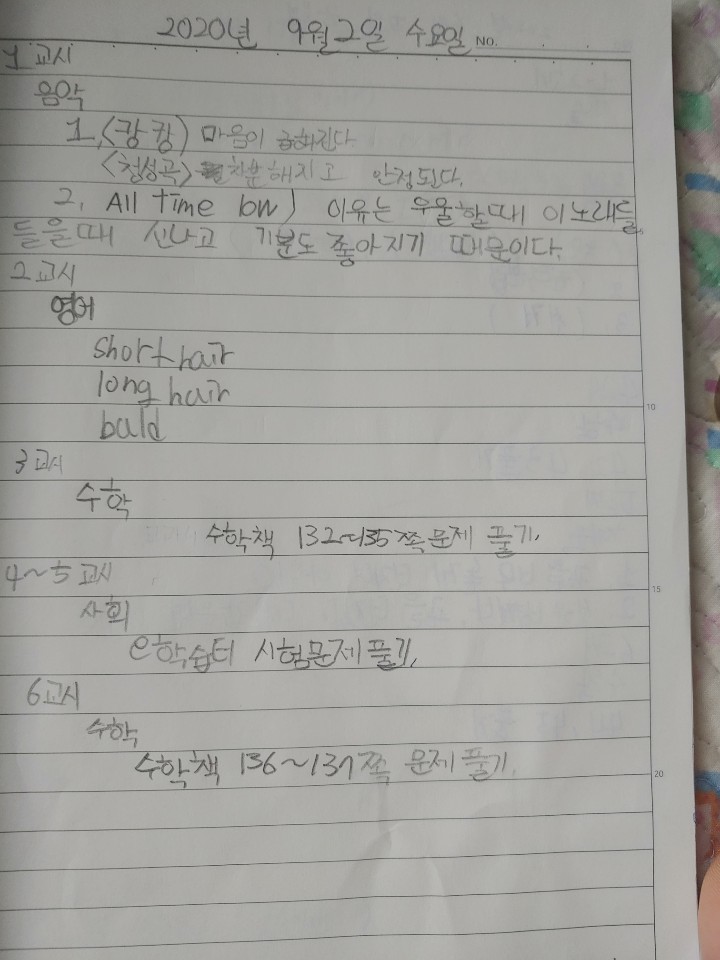 2020년 9월 2일 수요일 NO.
1교시
음악
1. <캉캉> 마음이 급해진다.
<청성곡> 차분해지고 안정된다.
2. All time low) 이유는 우울할때 이노래를
들을때 신나고 기분도 좋아지기 때문이다.
2교시
영어
short hair
long hair
bald
3교시
수학
수학책 132~135쪽 문제 풀기.
4~5교시
사회
e학습터 시험문제 풀기.
6교시
수학
수학책 136~137쪽 문제 풀기.
10
15
20